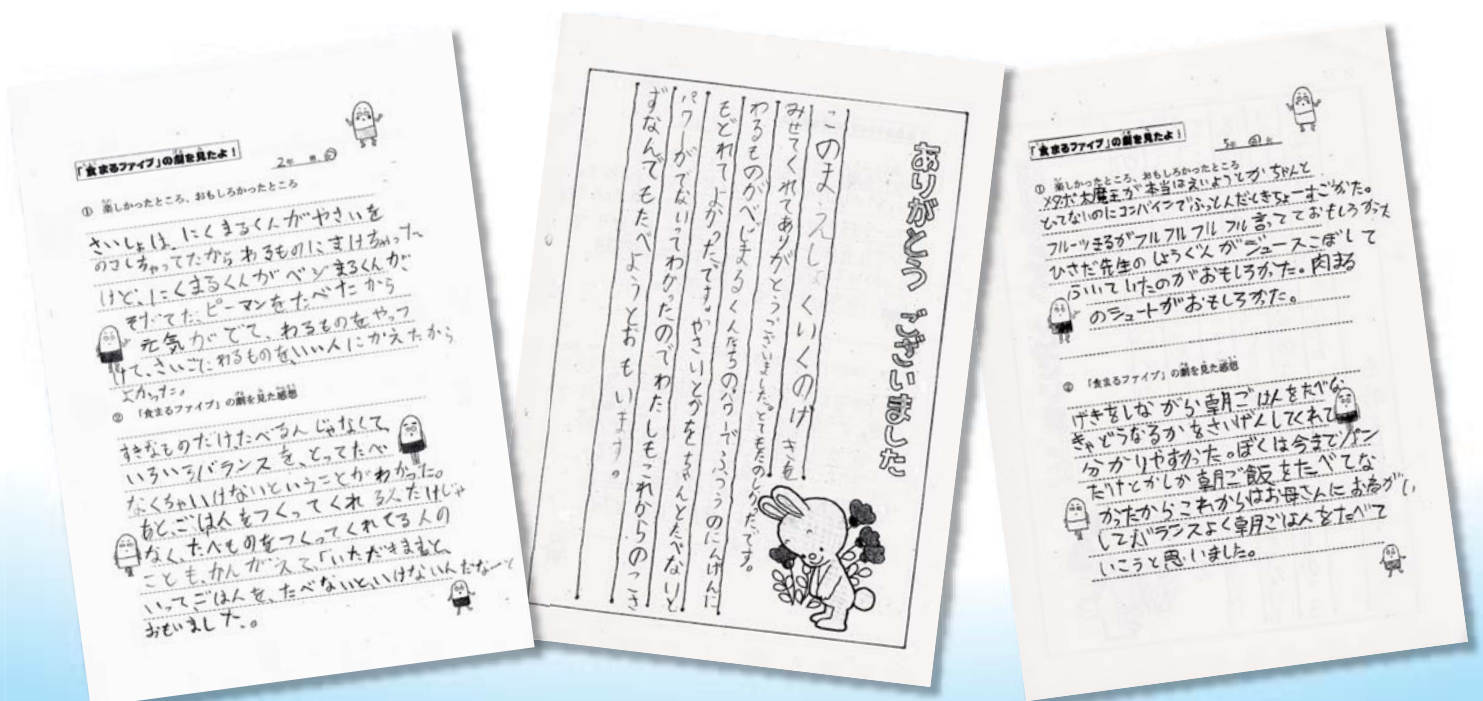 「食まるファイブ」の劇を見たよ！
2年 組
① 楽しかったところ、おもしろかったところ
さいしょは、にくまるくんがやさいを
のこしちゃってたからわるものにまけちゃった
けど、にくまるくんがベジまるくんが、
そだてた、ピーマンをたべたから
元気がでて、わるものをやっつ
けて、さいごに、わるものを、いい人にかえたから
よかった。
② 「食まるファイブ」の劇を見た感想
すきなものだけたべるんじゃなくて、
いろいろバランスを、とってたべ
なくちゃいけないということがわかった。
あと、ごはんをつくってくれる人だけじゃ
なく、たべものをつくってくれてる人の
ことも、かんがえて、「いただきますと、
いってごはんを、たべないと、いけないんだな〜と
おもいました。
ありがとう ございました
このまえしょくいくのげきを
みせてくれてありがとうございました。とてもたのしかったです。
わるものがべじまるくんたちのパワーでふつうのにんげんに
もどれてよかったです。やさいとかをちゃんとたべないと
パワーがでないってわかったのでわたしもこれからのこさ
ずなんでもたべようとおもいます。
「食まるファイブ」の劇を見たよ！
5年
① 楽しかったところ、おもしろかったところ
メタボ大魔王が本当はえいようとかちゃんと
とってないのにコンバインでふっとんだときちょーすごかた。
フルーツまるがフルフルフルフル言っておもしろかった
ひさだ先生のしょうぐんがジュースこぼして
ふいていたのがおもしろかった。肉まる
のシュートがおもしろかった。
② 「食まるファイブ」の劇を見た感想
げきをしながら朝ごはんをたべな
きゃどうなるかをさいげんしてくれて
分かりやすかった。ぼくは今までパン
だけとかしか朝ご飯をたべてな
かったからこれからはお母さんにお願い
してバランスよく朝ごはんをたべて
いこうと思いました。